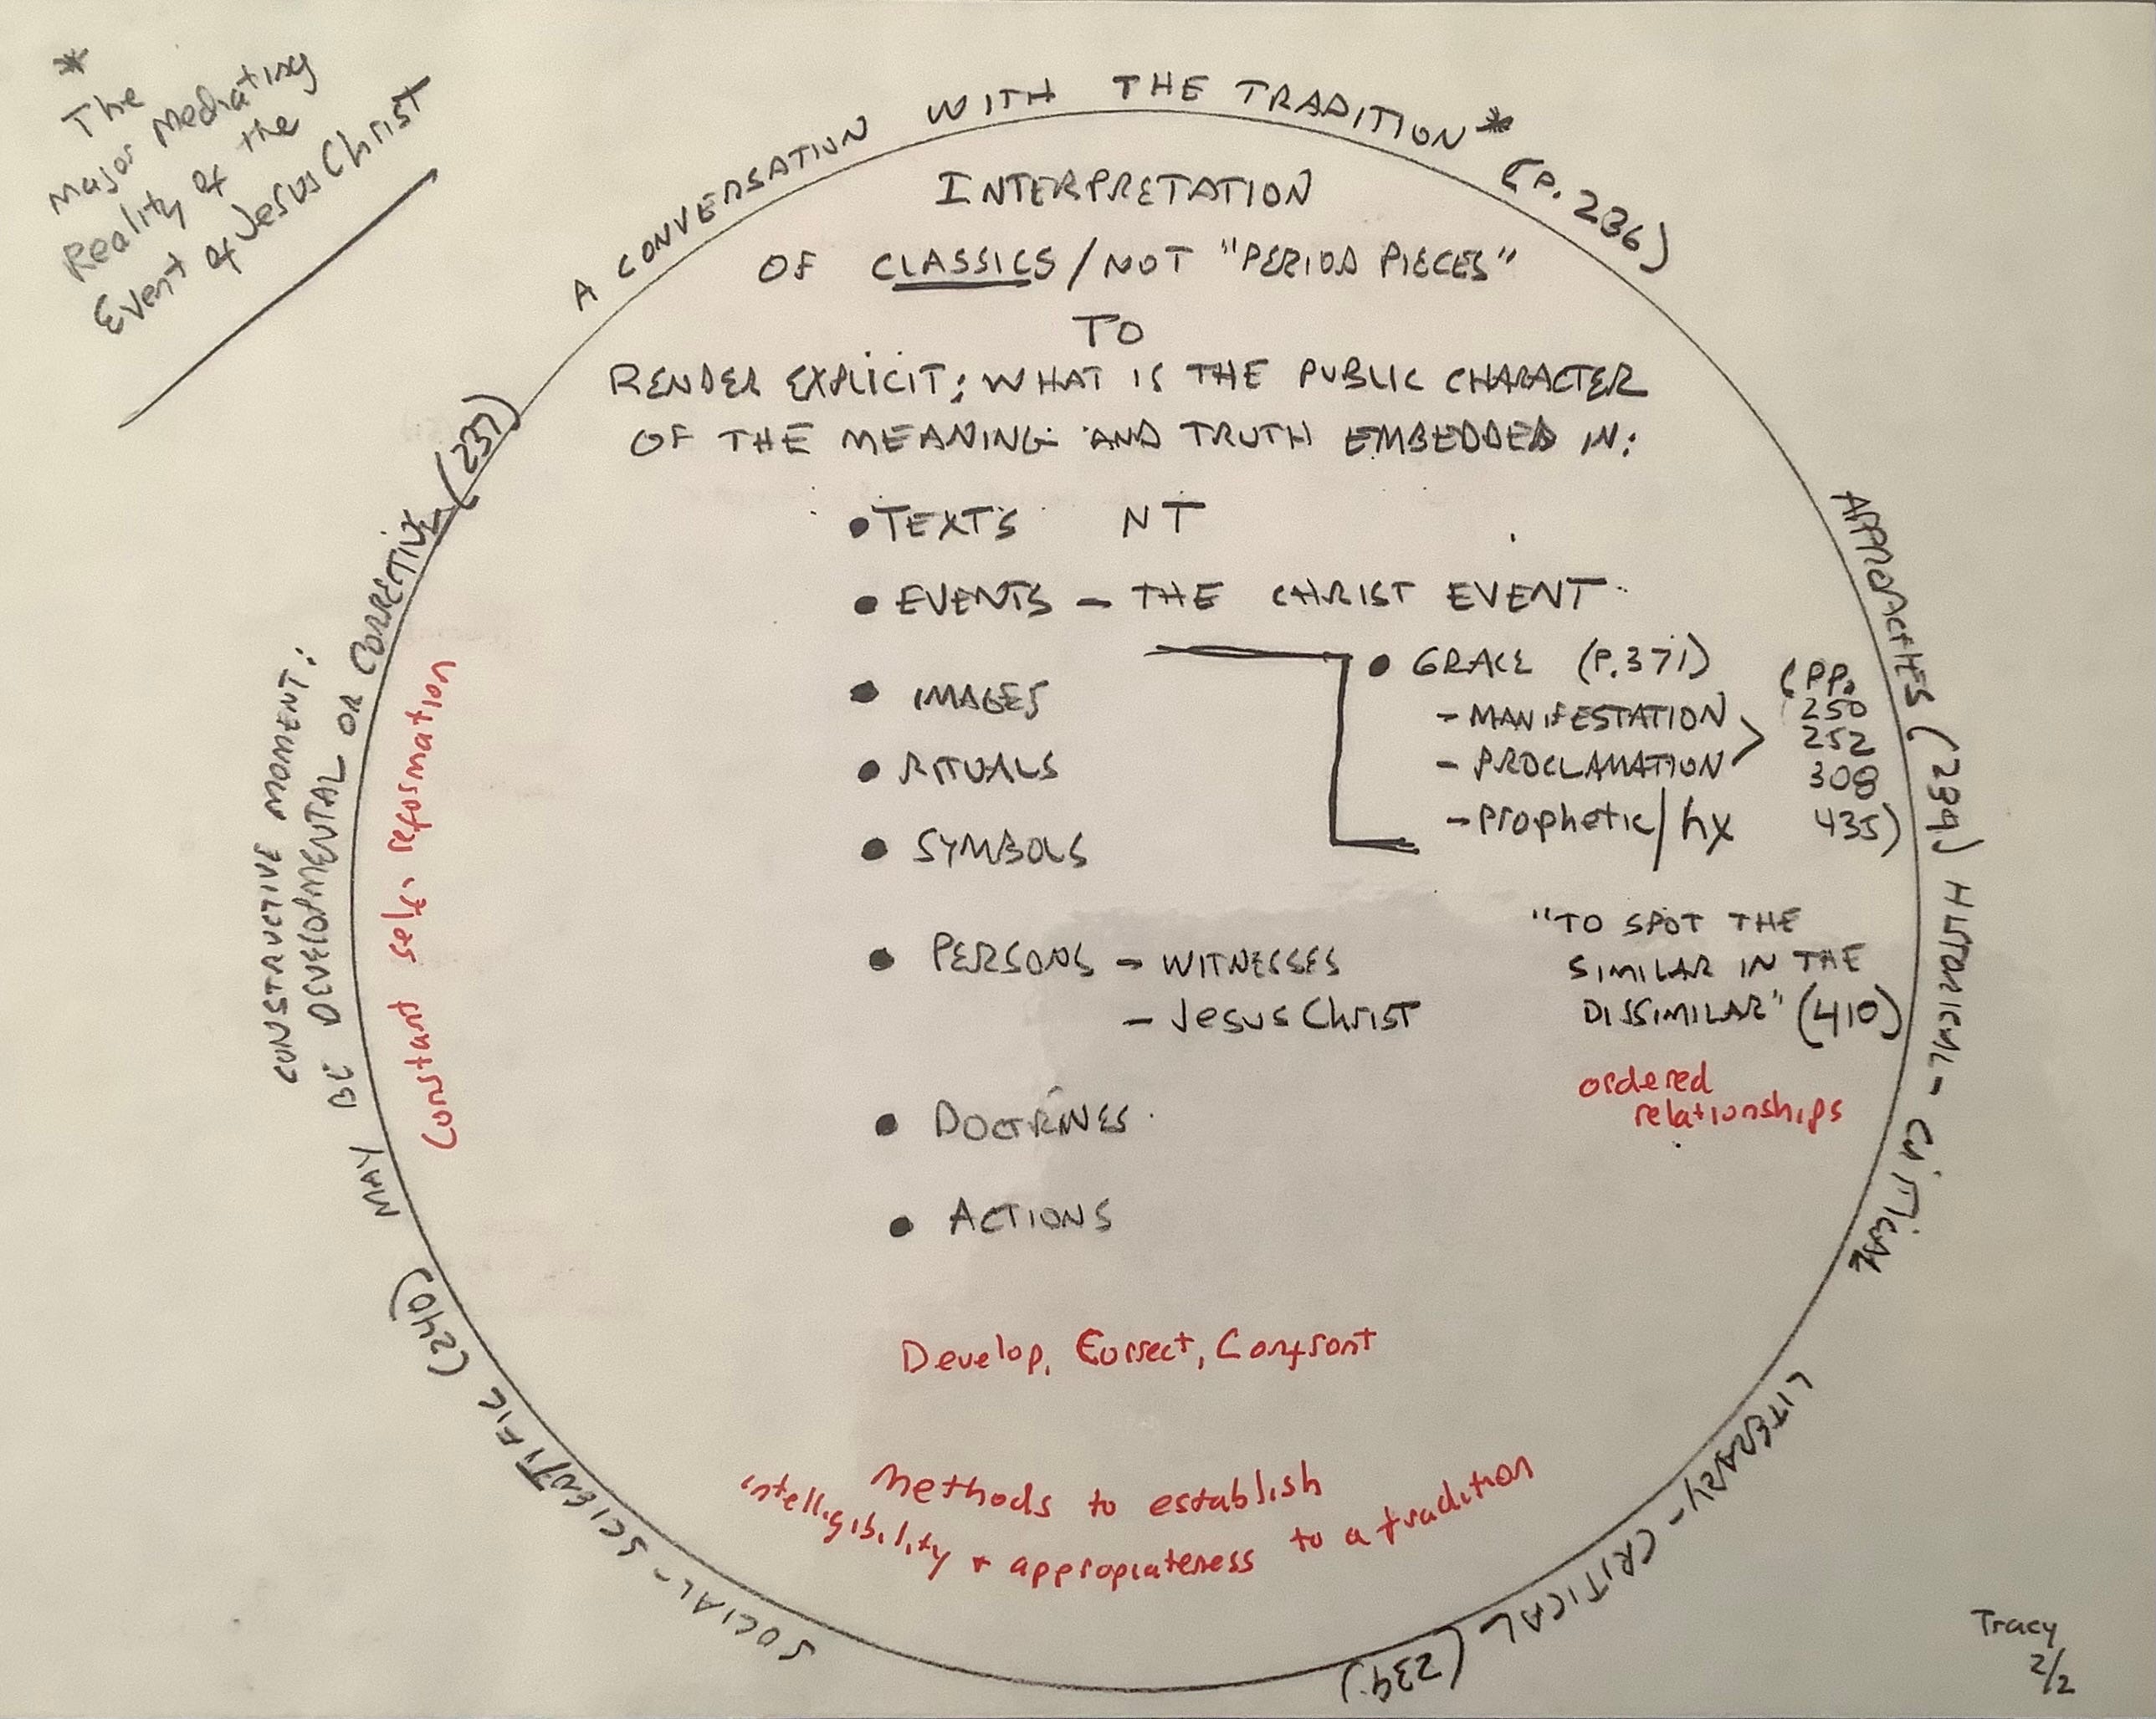 *
The
Major Mediating
Reality of the
Event of Jesus Christ
A CONVERSATION WITH THE TRADITION* (P. 236)
INTERPRETATION
OF CLASSICS / NOT "PERIOD PIECES"
TO
RENDER EXPLICIT: WHAT IS THE PUBLIC CHARACTER
OF THE MEANING AND TRUTH EMBEDDED IN:
• TEXTS NT
• EVENTS – THE CHRIST EVENT
• GRACE (P.371)
– MANIFESTATION
– PROCLAMATION
– Prophetic/hx
(PP.
250
252
308
435)
• IMAGES
• RITUALS
• SYMBOLS
• PERSONS – WITNESSES
– Jesus Christ
"TO SPOT THE
SIMILAR IN THE
DISSIMILAR" (410)
ordered
relationships
• DOCTRINES
• ACTIONS
Develop, Correct, Confront
Methods to establish
intelligibility + appropiateness to a tradition
APPROACHES (239) HISTORICAL-CRITICAL
LITERARY-CRITICAL (239)
SOCIAL-SCIENTIFIC (240)
CONSTRUCTIVE MOMENT:
MAY BE DEVELOPMENTAL OR CORRECTIVE (237)
Constant self-reformation
Tracy
2/2